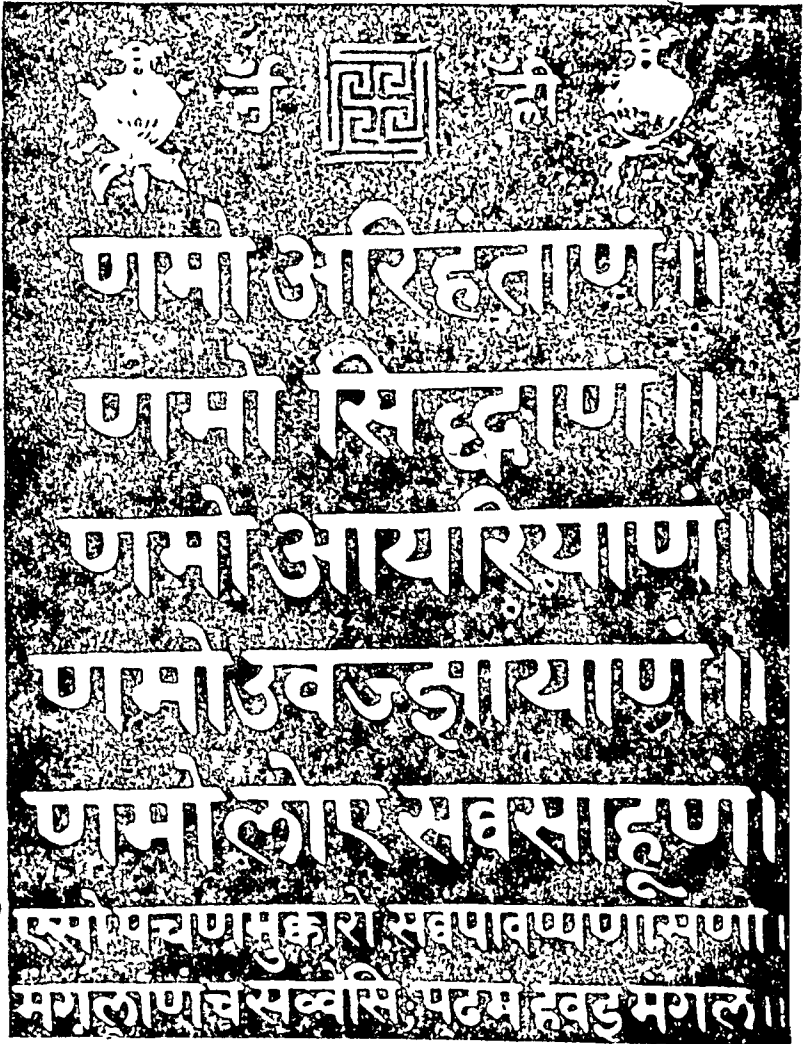 ॐ ह्रीं
णमो अरिहंताणं ॥
णमो सिद्धाणं ॥
णमो आयरियाणं ॥
णमो उवज्झायाणं ॥
णमो लोए सव्वसाहूणं ।
एसो पंचणमुक्कारो, सव्वपावप्पणासणो ।
मंगलाणं च सव्वेसिं, पढमं हवइ मंगलं ॥